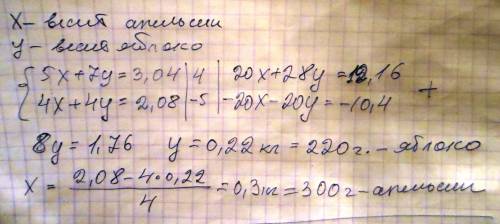 X – весит апельсин
y – весит яблоко
{ 5x+7y=3,04 | 4 | 20x+28y=12,16
4x+4y=2,08 | -5 | -20x-20y=-10,4 +
8y=1,76 y=0,22 кг=220г. – яблоко
X = (2,08-4*0,22)/4 =0,3кг=300г-апельсин